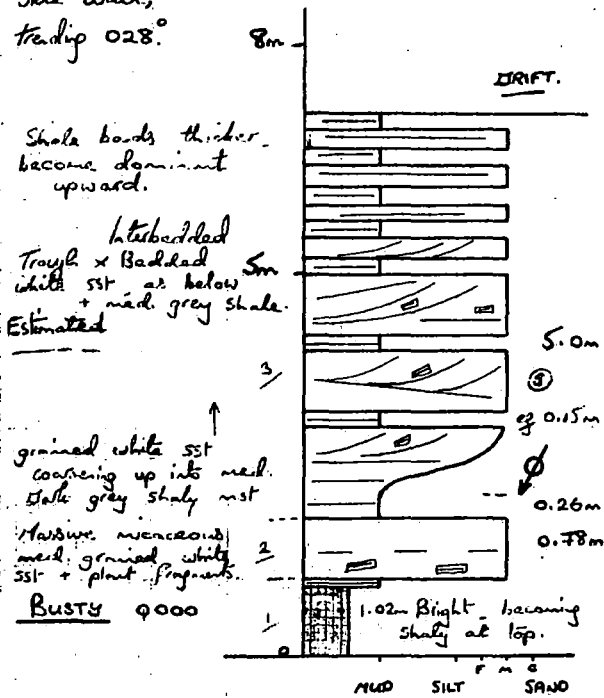 trending 028°.
8m
DRIFT.
Shale bands thicker
become dominant
upward.
Interbedded
Trough x Bedded
white sst as below
+ med. grey shale.
5m
Estimated
5.0m
3
eg 0.15m
grained white sst
coarsening up into med.
Dark grey shaly mst
0.26m
Massive micaceous
med. grained white
sst + plant fragments.
2
0.78m
BUSTY Q000
1
1.02m Bright becoming
shaly at top.
0
F M C
MUD SILT SAND